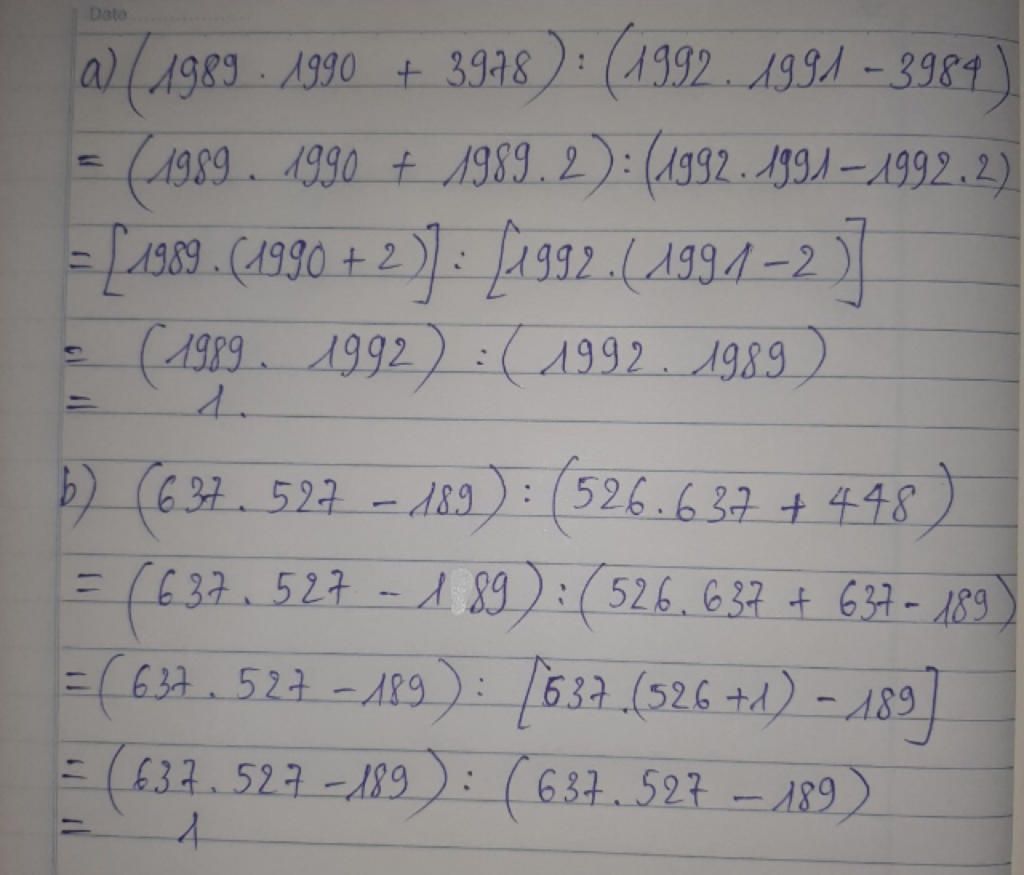 Date
a) (1989 . 1990 + 3978) : (1992 . 1991 - 3984)
= (1989 . 1990 + 1989 . 2) : (1992 . 1991 - 1992 . 2)
= [1989 . (1990 + 2)] : [1992 . (1991 - 2)]
= (1989 . 1992) : (1992 . 1989)
= 1.
b) (637 . 527 - 189) : (526 . 637 + 448)
= (637 . 527 - 189) : (526 . 637 + 637 - 189)
= (637 . 527 - 189) : [637 . (526 + 1) - 189]
= (637 . 527 - 189) : (637 . 527 - 189)
= 1